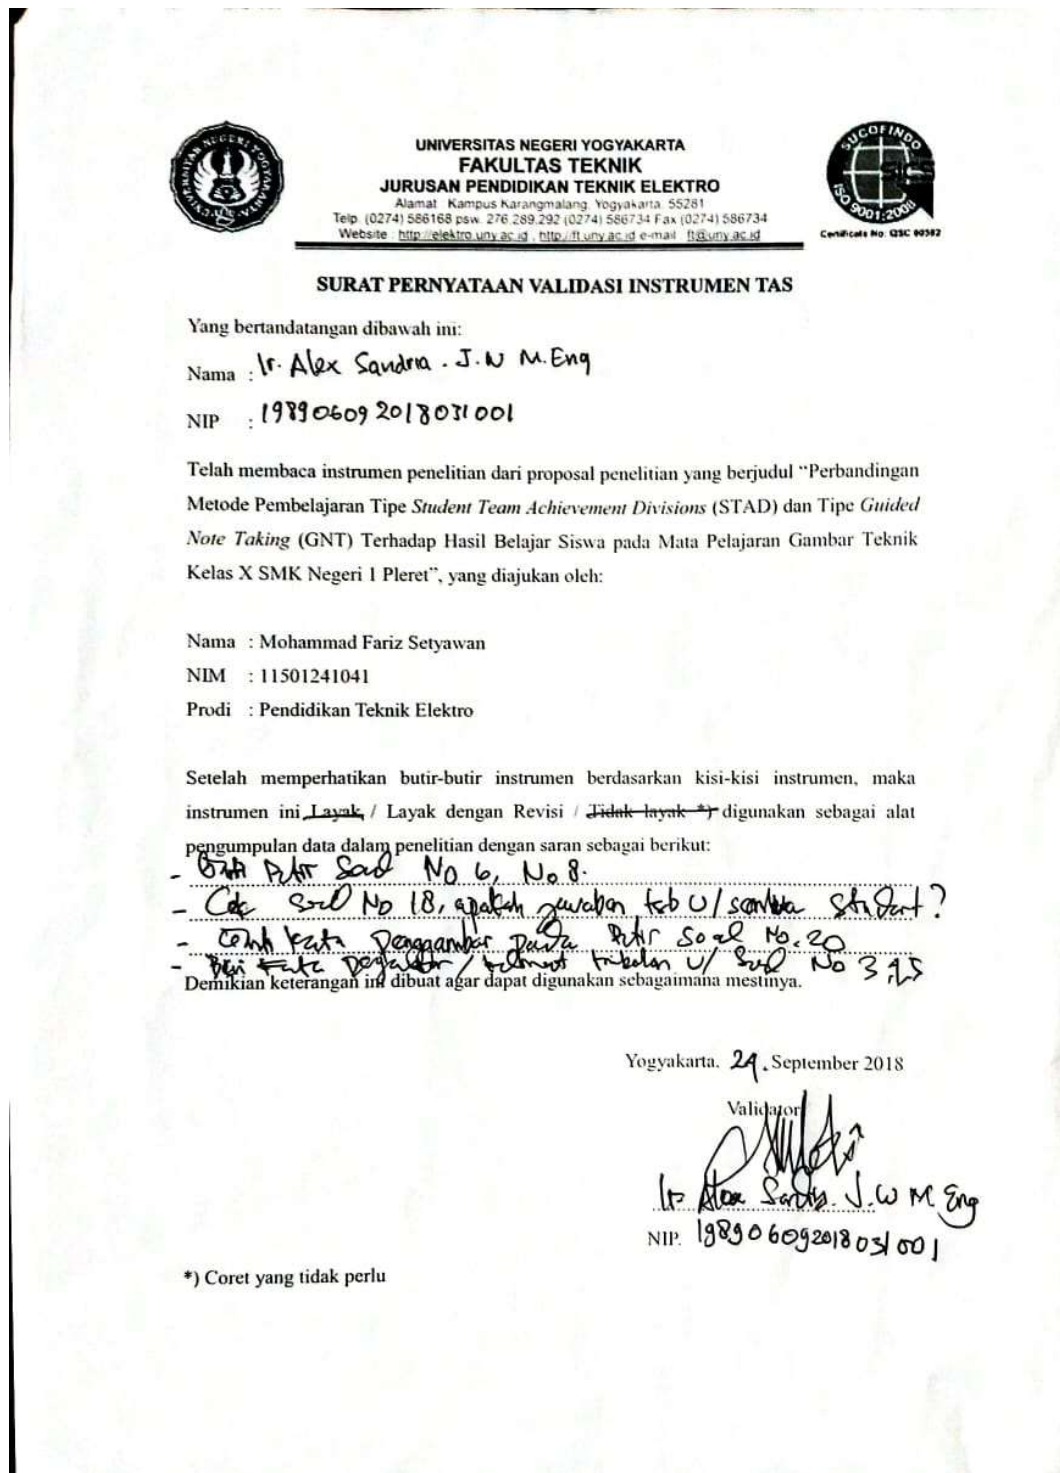 UNIVERSITAS NEGERI YOGYAKARTA
UNIVERSITAS NEGERI YOGYAKARTA
FAKULTAS TEKNIK
JURUSAN PENDIDIKAN TEKNIK ELEKTRO
Alamat : Kampus Karangmalang, Yogyakarta, 55281
Telp. (0274) 586168 psw. 276,289,292 (0274) 586734 Fax (0274) 586734
Website : http://elektro.uny.ac.id , http://ft.uny.ac.id e-mail : ft@uny.ac.id
SUCOFINDO
SICS
ISO 9001:2008
Certificate No: QSC 00582
SURAT PERNYATAAN VALIDASI INSTRUMEN TAS
Yang bertandatangan dibawah ini:
Nama : Ir. Alex Sandria . J.W M.Eng
NIP : 19890609 2018031001
Telah membaca instrumen penelitian dari proposal penelitian yang berjudul “Perbandingan
Metode Pembelajaran Tipe Student Team Achievement Divisions (STAD) dan Tipe Guided
Note Taking (GNT) Terhadap Hasil Belajar Siswa pada Mata Pelajaran Gambar Teknik
Kelas X SMK Negeri 1 Pleret”, yang diajukan oleh:
Nama : Mohammad Fariz Setyawan
NIM : 11501241041
Prodi : Pendidikan Teknik Elektro
Setelah memperhatikan butir-butir instrumen berdasarkan kisi-kisi instrumen, maka
instrumen ini Layak / Layak dengan Revisi / Tidak layak *) digunakan sebagai alat
pengumpulan data dalam penelitian dengan saran sebagai berikut:
- Butir Soal No 6, No 8.
- Cek Soal No 18, apakah jawaban tsb U/ semua Standart?
- kata penggambar pada Butir Soal No. 20
- Beri kata U/ Soal No
Demikian keterangan ini dibuat agar dapat digunakan sebagaimana mestinya.
Yogyakarta, 24, September 2018
Validator
Ir. Alex J.W M Eng
NIP. 198906092018031001
*) Coret yang tidak perlu